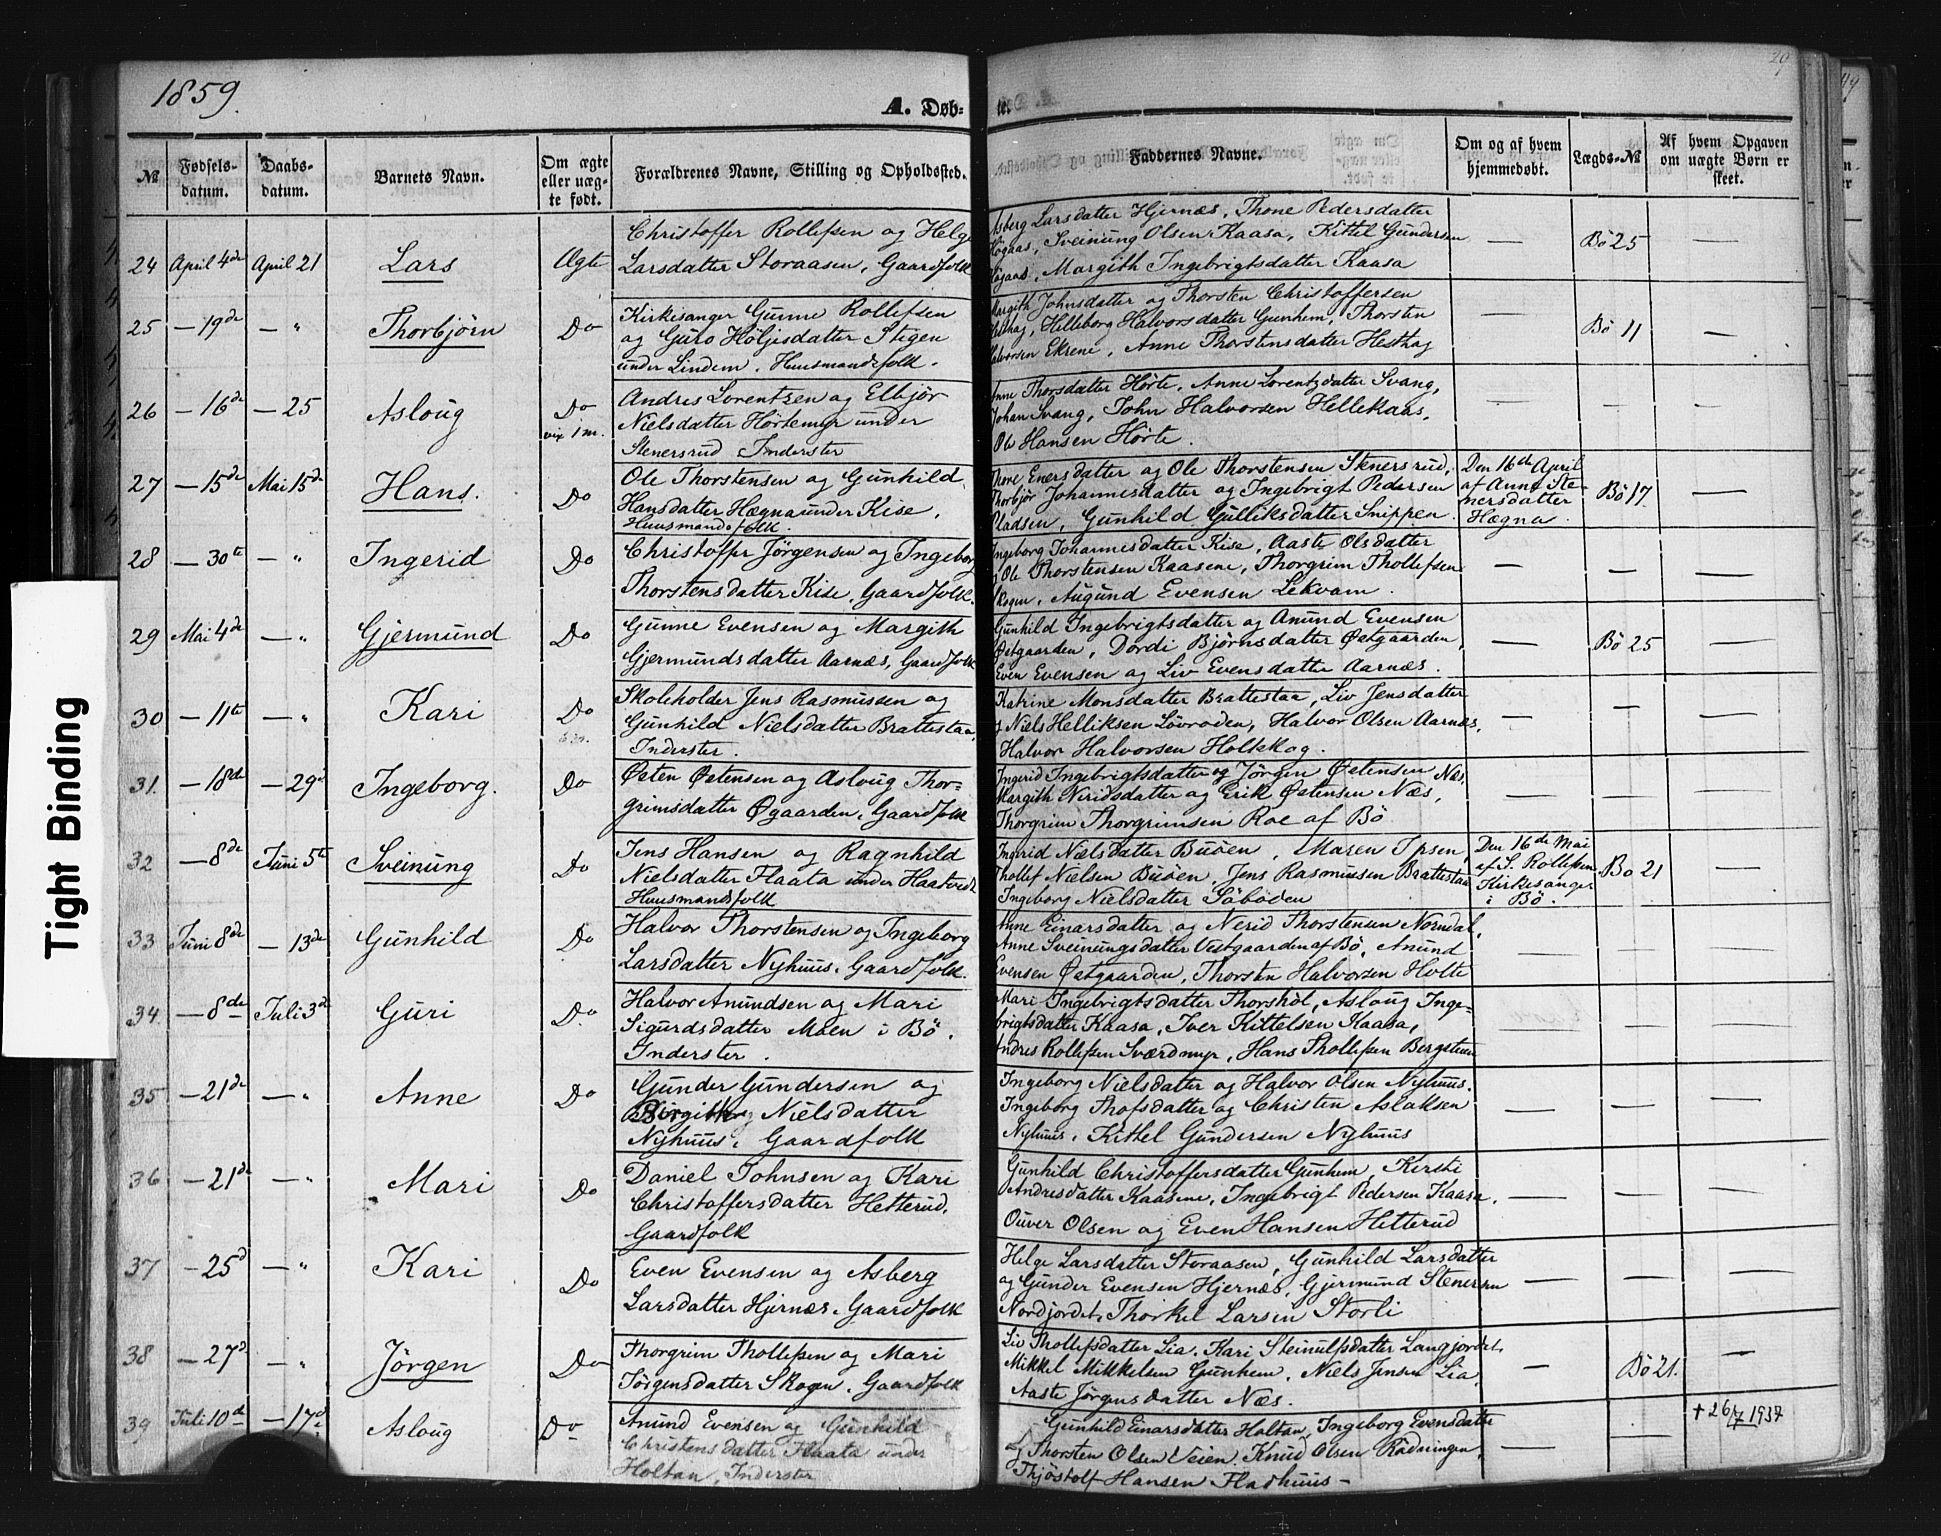 1859.
A. Døb-
te.
29
49
№
Fødsels-
datum.
Daabs-
datum.
Barnets Navn.
Om ægte
eller uæg-
te født.
Forældrenes Navne, Stilling og Opholdssted.
Faddernes Navne.
Om og af hvem
hjemmedøbt.
Lægds-№
Af hvem Opgaven
om uægte Børn er
skeet.
24 April 4de April 21 Lars Ægte
Christoffer Rollefsen og Helge
Larsdatter Storaasen, Gaardfolk
Asberg Larsdatter Hjernæs, Thone Pedersdatter
Høgaas, Sveinung Olsen Kaasa, Kittel Gundersen
Høgaas, Margith Ingebrigtsdatter Kaasa
— Bø 25 —
25 — 19de — " Thorbjørn Do
Kirkesanger Gunne Rollefsen
og Guro Høljesdatter Stigen
under Lindem, Huusmandsfolk.
Margith Johnsdatter og Thorsten Christoffersen
Hesthag, Helleborg Halvorsdatter Gunhem, Thorsten
Halvorsen Ekrene, Anne Thorstensdatter Hesthag
— Bø 11 —
26 — 16de — 25 Asloug Do
vix 1 m.
Andres Lorentzen og Elbjør
Nielsdatter Hørtemyr under
Stenersrud Inderster
Anne Thorsdatter Hørte, Anne Lorentzdatter Svang,
Johan Svang, John Halvorsen Hellekaas,
Ole Hansen Hørte.
— — —
27 — 15de Mai 15de Hans. Do
Ole Thorstensen og Gunhild
Hansdatter Hægna under Kise,
Huusmandsfolk.
Thore Enersdatter og Ole Thorstensen Stenersrud,
Thorbjør Johannesdatter og Ingebrigt Pedersen
Pladsen, Gunhild Gulliksdatter Snippen.
Den 16de April
af Anne Ste-
nersdatter
Hægna.
Bø 17 —
28 — 30te — " Ingerid Do
Christoffer Jørgensen og Ingeborg
Thorstensdatter Kise, Gaardfolk.
Ingeborg Johannesdatter Kise, Aaste Olsdatter
og Ole Thorstensen Kaasene, Thorgrim Thollefsen
Skogen, Augund Evensen Lekvam.
— — —
29 Mai 4de — " Gjermund Do
Gunne Evensen og Margith
Gjermundsdatter Aarnæs, Gaardfolk
Gunhild Ingebrigtsdatter og Anund Evensen
Østgaarden, Dordi Bjørnsdatter Østgaarden,
Even Evensen og Liv Evensdatter Aarnæs.
— Bø 25 —
30 — 11te — " Kari Do
Skoleholder Jens Rasmussen og
Gunhild Nielsdatter Brattestaa,
Inderster.
Katrine Monsdatter Brattestaa, Liv Jensdatter
og Niels Helliksen Løvroden, Halvor Olsen Aarnæs,
Halvor Halvorsen Holtekog.
— — —
31. — 18de — 29de Ingeborg. Do
Østen Østensen og Asloug Thor-
grimsdatter Øgaarden, Gaardfolk
Ingerid Ingebrigtsdatter og Jørgen Østensen Næs,
Margith Neridsdatter og Erik Østensen Næs,
Thorgrim Thorgrimsen Roe af Bø
— — —
32 — 8de Juni 5te Sveinung Do
Jens Hansen og Ragnhild
Nielsdatter Flaata under Haatvedt
Huusmandsfolk
Ingerid Nielsdatter Buøen, Maren Ipsen,
Thollef Nielsen Buøen, Jens Rasmussen Brattestaa
Ingeborg Nielsdatter Søbøden
Den 16de Mai
af S. Rollefsen
Kirkesanger
i Bø.
Bø 21 —
33 Juni 8de — 13de Gunhild Do
Halvor Thorstensen og Ingeborg
Larsdatter Nyhuus, Gaardfolk.
Anne Einarsdatter og Nerid Thorstensen Norndal,
Anne Sveinungsdatter Vestgaarden af Bø, Anund
Evensen Østgaarden, Thorsten Halvorsen Holte
— — —
34. — 8de Juli 3de Guri Do
Halvor Anundsen og Mari
Sigurdsdatter Moen i Bø.
Inderster.
Mari Ingebrigtsdatter Thorshol, Asloug Inge-
brigtsdatter Kaasa, Iver Kittelsen Kaasa,
Andres Rollefsen Sværdmyr, Hans Thollefsen Bergsteen
35 — 21de — " Anne Do
Gunder Gundersen og
Nielsdatter
Nyhuus, Gaardfolk
Ingeborg Nielsdatter og Halvor Olsen Nyhuus.
Ingeborg Thofsdatter og Christen Aslaksen
Nyhuus, Kittel Gundersen Nyhuus
— — —
36 — 21de — " Mari Do
Daniel Johnsen og Kari
Christoffersdatter Hetterud,
Gaardfolk
Gunhild Christoffersdatter Gunhem, Kirsti
Andresdatter Kaasene, Ingebrigt Pedersen Kaasa,
Ouver Olsen og Even Hansen Hetterud
— — —
37 — 25d — " Kari Do
Even Evensen og Asberg
Larsdatter Hjernæs, Gaardfolk
Helge Larsdatter Storaasen, Gunhild Larsdatter
og Gunder Evensen Hjernæs, Gjermund Stenersen
Nordjordet, Thorkel Larsen Storli
— — —
38 — 27d — " Jørgen Do
Thorgrim Thollefsen og Mari
Jørgensdatter Skogen, Gaardfolk
Liv Thollefsdatter Lia, Kari Steinulfsdatter Langjordet,
Mikkel Mikkelsen Gunhem, Niels Jensen Lia,
Aaste Jørgensdatter Næs.
— Bø 21. —
39 Juli 10de — 17de Asloug Do
Anund Evensen og Gunhild
Christensdatter Flaata under
Holtan, Inderster
Gunhild Einarsdatter Holtan, Ingeborg Evensdatter
og Thorsten Olsen Veien, Knud Olsen Rødningen,
Thjøstolf Hansen Fladhuus —
— — —
+ 26/7 1937
Tight Binding